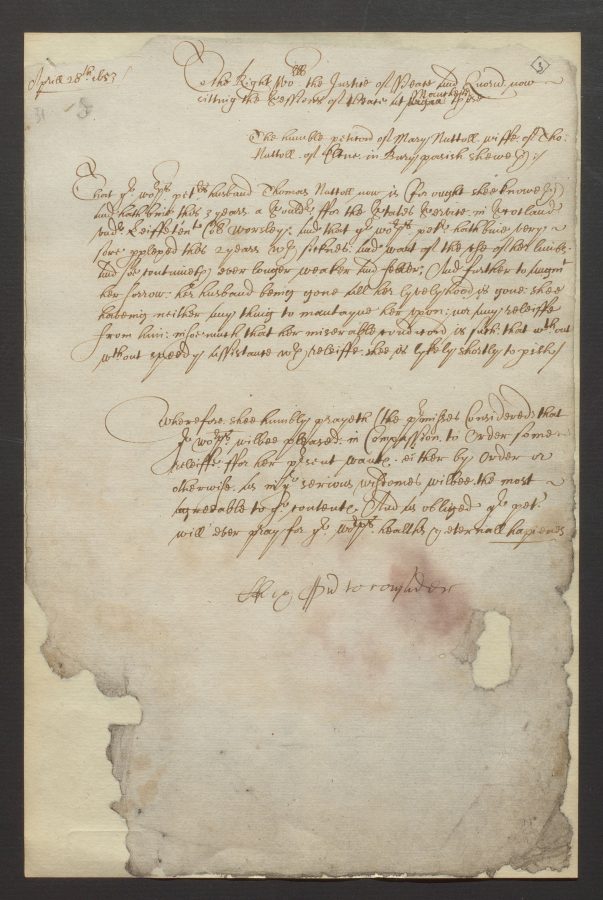 Aprill 28th 1653
To the Right Worll the Justices of Peace and Quorum now
sitting the Sessions of Peace at Manchester
The humble peticon of Mary Nuttoll wiffe of Tho:
Nuttoll of Elton in Bury parish sheweth
That yor worpps petrs husband Thomas Nuttoll now is (for ought shee knoweth)
and hath bine this 3 years a Souldr ffor the States Service in Scotland
undr Leiftent Coll Worsley, and that yor worpps petr hath bine very
sore this 2 years wth sicknes and want of the use of her limbs
and soe contineweth ever longer weaker and febler; And further to
her sorrow her husband being gone all her lyvelyhood is gone shee
haveing neither any thing to mantayne her upon; nor any releiffe
from him: insomuch that her miserable condicon is such that wthout
wthout speedy assistance wth releiffe shee is lykely shortly to perish
Wherefore shee humbly prayeth (the pmisses Considered) that
yor worpps wilbee pleased in Compassion to Order some
releiffe ffor her psent want either by Order or
otherwise, as in yor serious wisdomes wilbee the most
agreeable to yor content And as obliged yor petr
will ever pray for yor worpps health & eternall hapienes
to consider